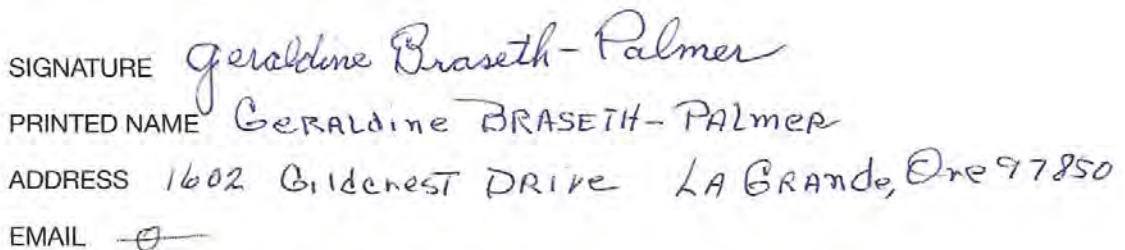 SIGNATURE Geraldine Braseth-Palmer
PRINTED NAME GERALDINE BRASETH-PALMER
ADDRESS 1602 Gildcrest DRIVE LA GRANDE, Ore 97850
EMAIL